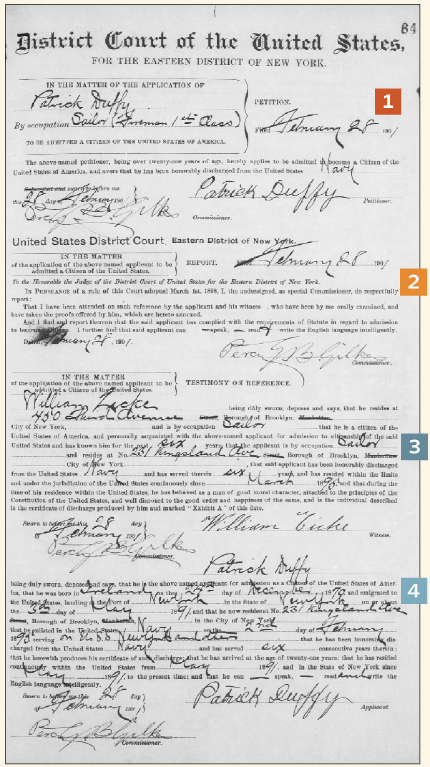 64
District Court of the United States,
FOR THE EASTERN DISTRICT OF NEW YORK.
IN THE MATTER OF THE APPLICATION OF
Patrick Duffy
By occupation Sailor (Fireman 1st Class)
TO BE ADMITTED A CITIZEN OF THE UNITED STATES OF AMERICA.
PETITION.
1
Filed February 28 1901
The above named petitioner, being over twenty-one years of age, hereby applies to be admitted to become a Citizen of the
United States of America, and avers that he has been honorably discharged from the United States Navy
Subscribed and sworn to before me
28 day February 190
Patrick Duffy
Petitioner.
Percy G B Gilkes
Commissioner.
United States District Court, Eastern District of New York.
IN THE MATTER
of the application of the above named applicant to be
admitted a Citizen of the United States.
REPORT.
February 28 1901
2
To the Honorable the Judge of the District Court of United States for the Eastern District of New York.
In PURSUANCE of a rule of this Court adopted March 1st, 1898, I, the undersigned, as special Commissioner, do respectfully
report:
That I have been attended on such reference by the applicant and his witness, who have been by me orally examined, and
have taken the proofs offered by him, which are hereto annexed.
And I find and report thereon that the said applicant has complied with the requirements of Statute in regard to admission
to become I further find that said applicant can speak, read write the English language intelligently.
Dated February 28, 1901.
Percy G B Gilkes
Commissioner.
IN THE MATTER
of the application of the above named applicant to be
admitted a Citizen of the United States.
TESTIMONY ON REFERENCE.
William
450 Avenue
being duly sworn, deposes and says that he resides at
Borough of Brooklyn, Manhattan,
City of New York, and is by occupation Sailor that he is a citizen of the
United States of America, and personally acquainted with the above-named applicant for admission to citizenship of the said
United States and has known him for the past six years that the applicant is by occupation Sailor
3
and resides at No. 231 Kingsland Ave Borough of Brooklyn, Manhattan,
City of New York, that said applicant has been honorably discharged
from the United States Navy and has served therein six years, and has resided within the limits
and under the jurisdiction of the United States continuously since March 1895 and that during the
time of his residence within the United States, he has behaved as a man of good moral character, attached to the principles of the
Constitution of the United States, and well disposed to the good order and happiness of the same, and is the individual described
in the certificate of discharge produced by him and marked "Exhibit A" of this date.
Sworn to before me this 28 day
of February 1901
William
Witness.
Percy G B Gilkes
Commissioner.
Patrick Duffy
4
being duly sworn, deposes and says, that he is the above named applicant for admission as a Citizen of the United States of Amer-
ica, that he was born in Ireland on the 25th day of December 1870 and emigrated to
the United States, landing at the port of New York in the State of New York on or about
the day of May 1891 and that he now resides at No. 231 Kingsland Ave
Borough of Brooklyn, Manhattan, in the City of New York
that he enlisted in the United States Navy on the day of February
1895 serving on U.S.S. New York and others that he has been honorably dis-
charged from the United States Navy and has served six consecutive years therein:
that he herewith produces his certificate of such discharge; that he has arrived at the age of twenty-one years; that he has resided
continuously within the United States from May 1891 in the State of New York since
May 1891 to the present time; and that he can speak, read and write the
English language intelligently.
Sworn to before me this 28 day
of February 1901
Patrick Duffy
Applicant.
Percy G B Gilkes
Commissioner.